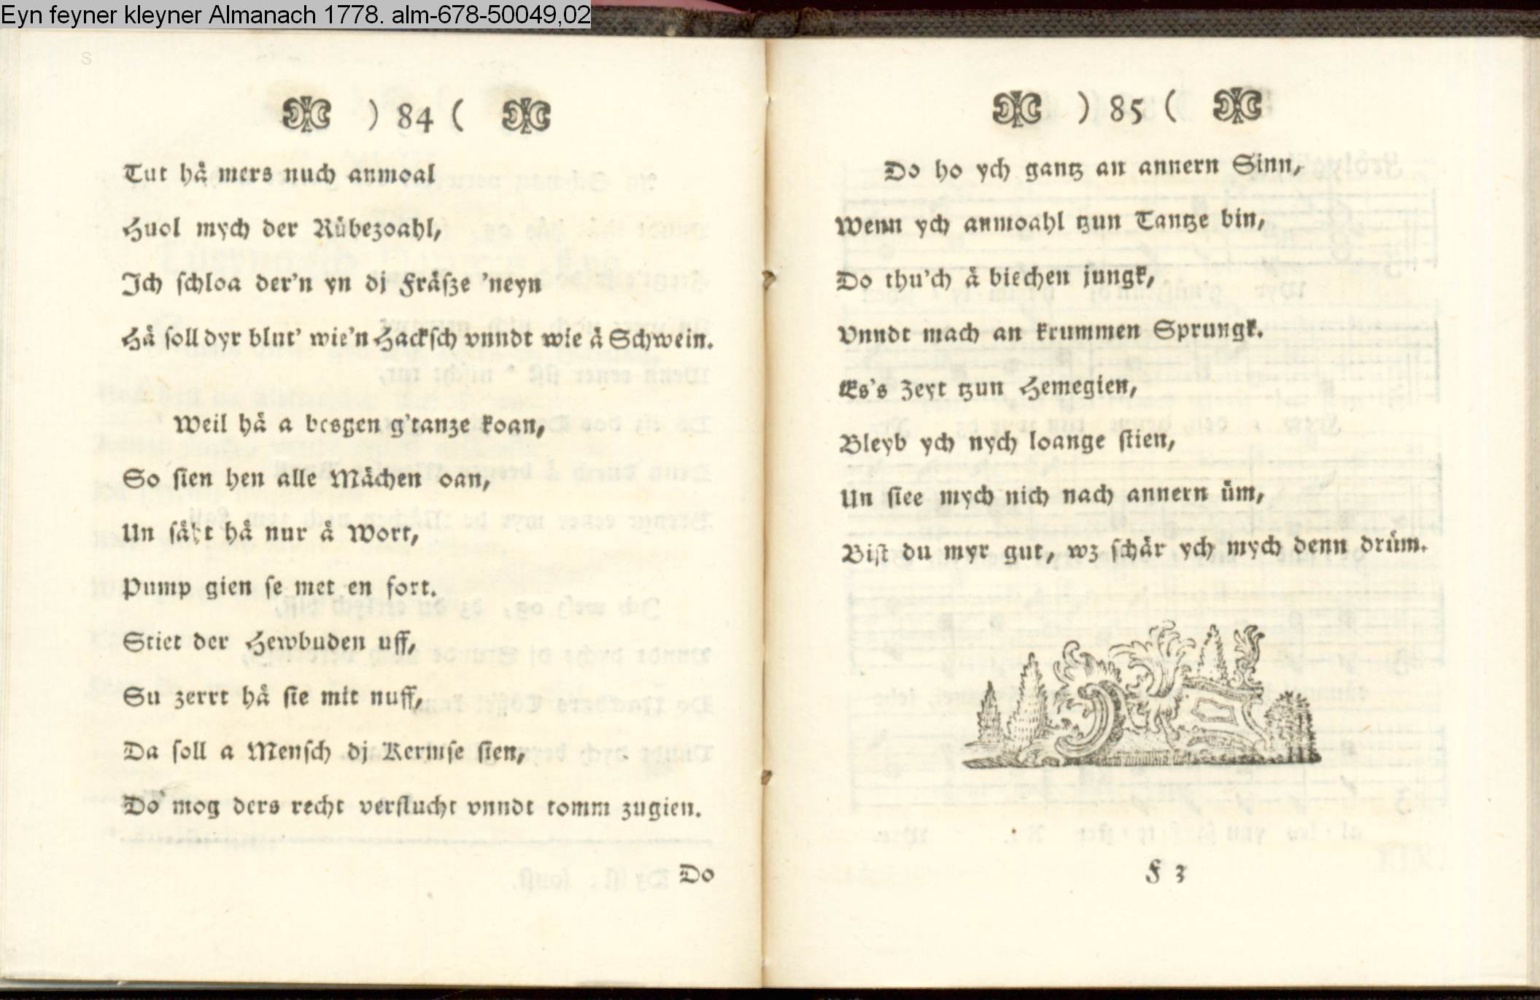 Eyn feyner kleyner Almanach 1778. alm-678-50049,02
) 84 (
Tut hå mers nuch anmoal
Huol mych der Rübezoahl,
Ich schloa der'n yn dj Fråsze 'neyn
Hå soll dyr blut' wie'n Hacksch vnndt wie å Schwein.
Weil hå a besgen g'tanze koan,
So sien hen alle Måchen oan,
Un hå nur å Wort,
Pump gien se met en fort.
Stiet der Hewbuden uff,
Su zerrt hå sie mit nuff,
Da soll a Mensch dj Kermse sien,
Do mog ders recht verflucht vnndt tomm zugien.
Do
) 85 (
Do ho ych gantz an annern Sinn,
Wenn ych anmoahl tzun Tantze bin,
Do thu'ch å biechen jungk,
Vnndt mach an krummen Sprungk.
Es's Zeyt tzun Hemegien,
Bleyb ych nych loange stien,
Un siee mych nich nach annern üm,
Bist du myr gut, wz schår ych mych denn drüm.
F 3